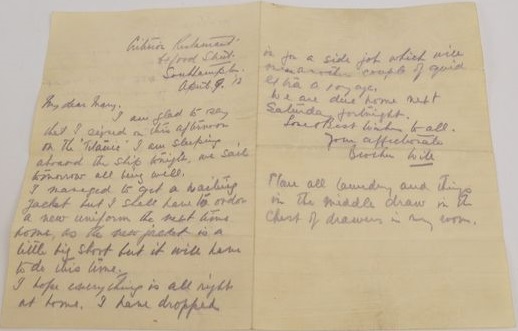 Criterion Restaurant
Oxford Street
Southampton
April 9. 12
My dear Mary,
I am glad to say
that I signed on this afternoon
on the 'Titanic' I am sleeping
aboard the ship tonight, we sail
tomorrow all being well.
I managed to get a waiting
Jacket but I shall have to order
a new uniform the next time
home, as the new jacket is a
little big short but it will have
to do this time.
I hope everything is all right
at home. I have dropped
in for a side job which will
couple of quid
extra a voyage.
We are due home next
Saturday fortnight.
Love & Best wishes to all.
Your affectionate
Brother Will
Place all laundry and things
in the middle draw in the
chest of drawers in my room.